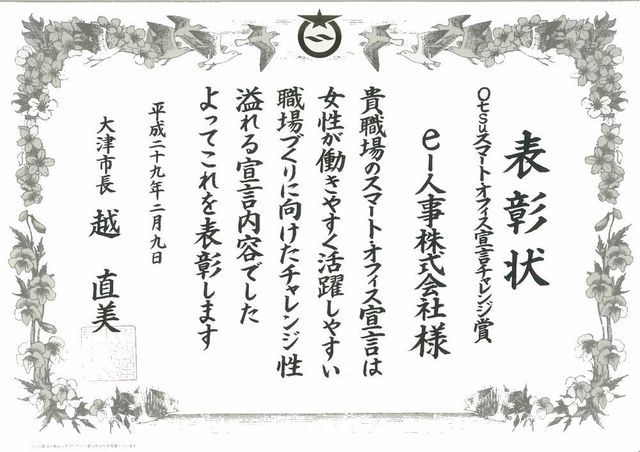 表彰状
Otsuスマート・オフィス宣言チャレンジ賞
e－人事株式会社様
貴職場のスマート・オフィス宣言は
女性が働きやすく活躍しやすい
職場づくりに向けたチャレンジ性
溢れる宣言内容でした
よってこれを表彰します
平成二十九年二月九日
大津市長 越 直美